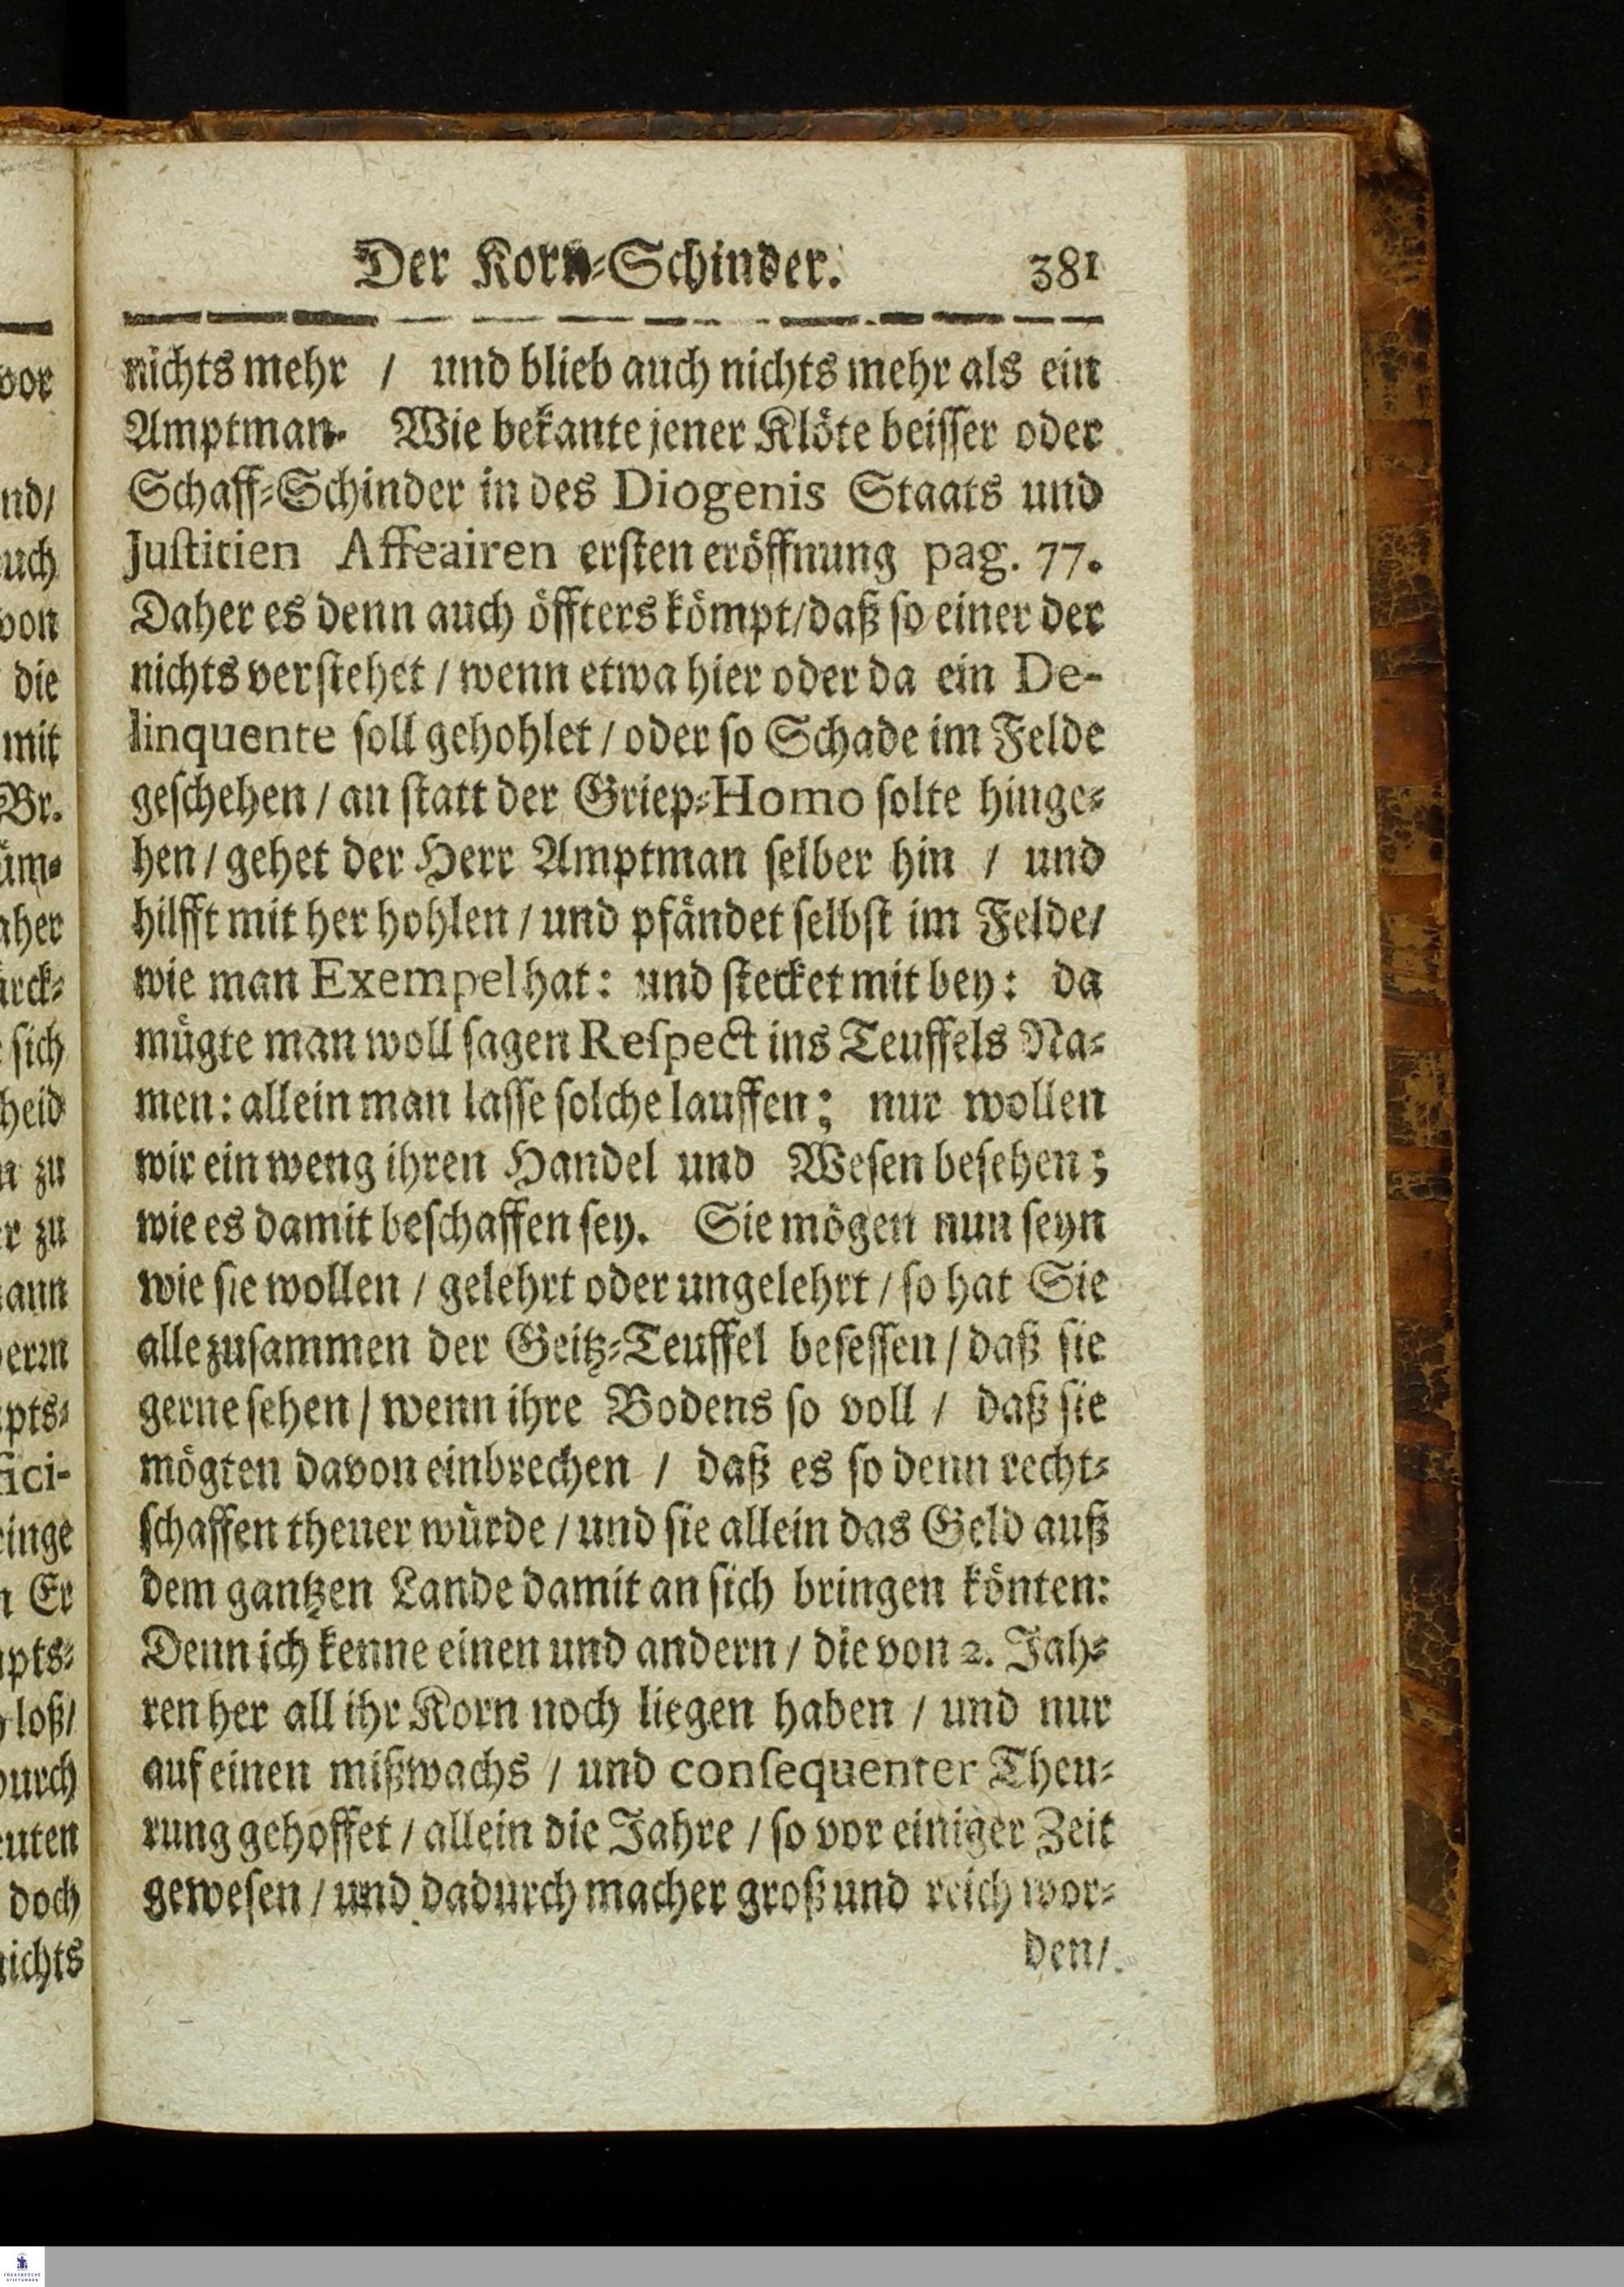 Der Korn-Schinder. 381
nichts mehr / und blieb auch nichts mehr als ein
Amptman. Wie bekante jener Klöte beisser oder
Schaff-Schinder in des Diogenis Staats und
Justitien Affeairen ersten eröffnung pag. 77.
Daher es denn auch öffters kömpt/daß so einer der
nichts verstehet / wenn etwa hier oder da ein De-
linquente soll gehohlet / oder so Schade im Felde
geschehen / an statt der Griep-Homo solte hinge-
hen / gehet der Herr Amptman selber hin / und
hilfft mit her hohlen / und pfändet selbst im Felde/
wie man Exempel hat: und stecket mit bey: da
mügte man woll sagen Respect ins Teuffels Na-
men: allein man lasse solche lauffen; nur wollen
wir ein weng ihren Handel und Wesen besehen;
wie es damit beschaffen sey. Sie mögen nun seyn
wie sie wollen / gelehrt oder ungelehrt / so hat Sie
alle zusammen der Geitz-Teuffel besessen / daß sie
gerne sehen / wenn ihre Bodens so voll / daß sie
mögten davon einbrechen / daß es so denn recht-
schaffen theuer würde / und sie allein das Geld auß
dem gantzen Lande damit an sich bringen könten:
Denn ich kenne einen und andern / die von 2. Jah-
ren her all ihr Korn noch liegen haben / und nur
auf einen mißwachs / und consequenter Theu-
rung gehoffet / allein die Jahre / so vor einiger Zeit
gewesen / und dadurch macher groß und reich wor-
den/
vor
nd/
uch
von
die
mit
Br.
üm-
aher
ärck-
sich
heid
n zu
er zu
ann
pts-
fici-
ringe
n Er
pts-
loß/
durch
euten
doch
nichts
FRANCKESCHE
STIFTUNGEN